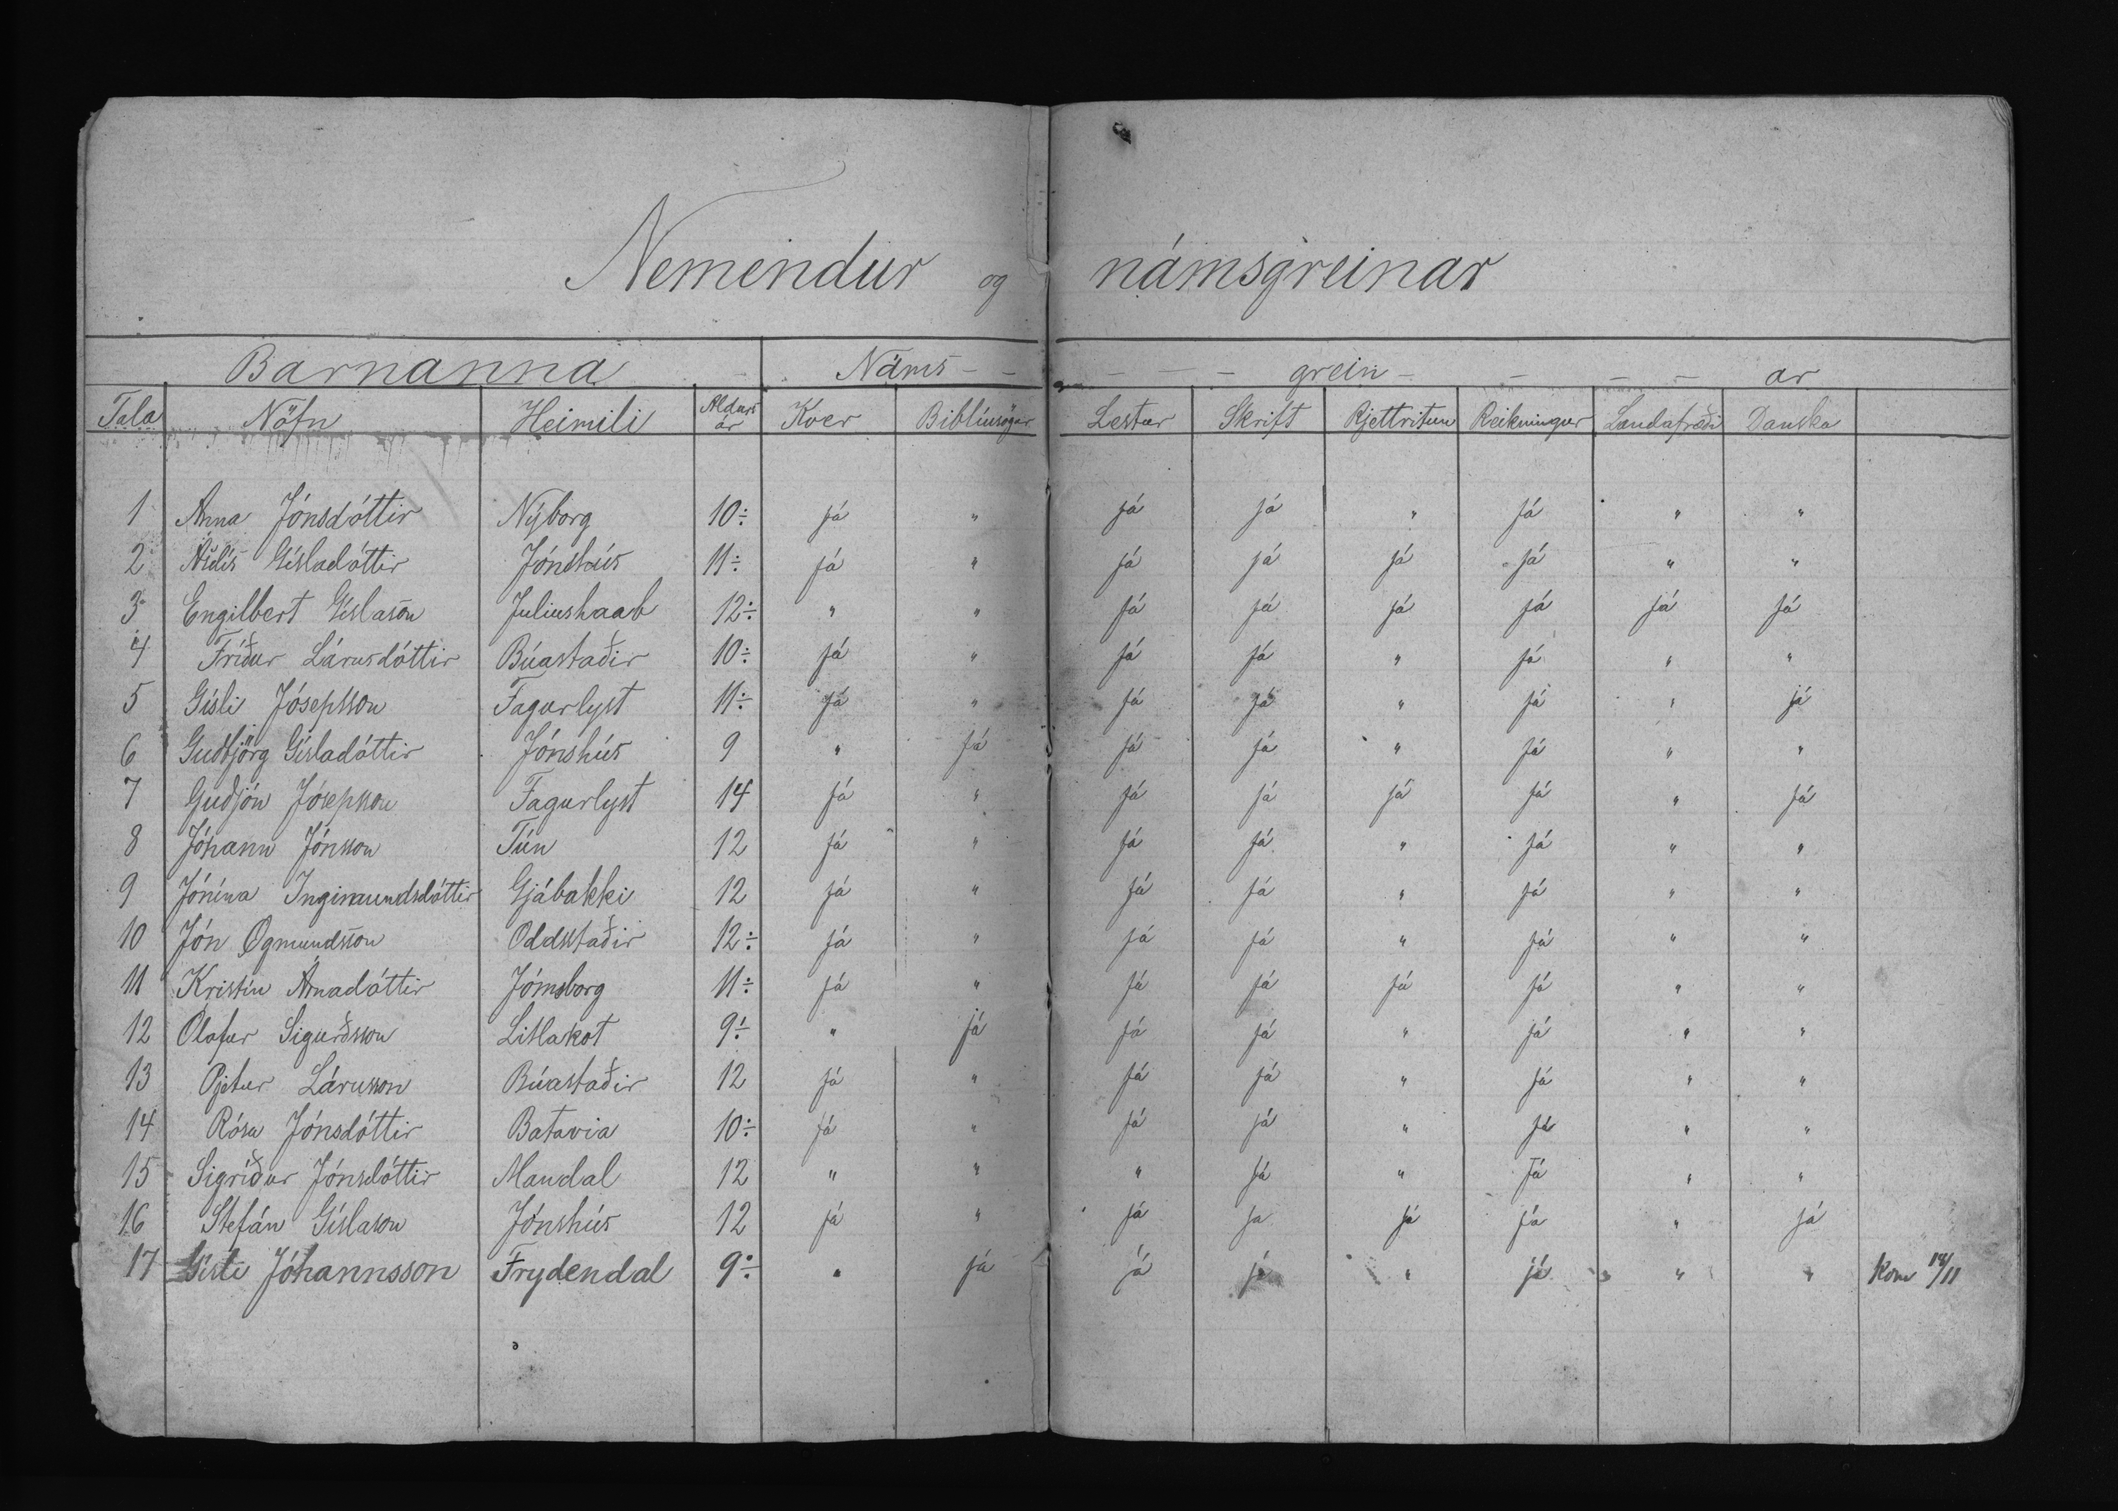 Nemendur og námsgreinar
Barnanna Náms - - - - - grein - - - - ar
Tala Nöfn Heimili Aldurs ár Kver Biblíusögur Lestur Skrift Rjettritun Reikningur Landafræði Danska
1 Anna Jónsdóttir Nýborg 10÷ já " já já " já " "
2 Ásdís Gísladóttir Jónshús 11÷ já " já já já já " "
3 Engilbert Gíslason Juliushaab 12÷ " " já já já já já já
4 Fríður Lárusdóttir Búastaðir 10÷ já " já já " já " "
5 Gísli Jósepsson Fagurlyst 11÷ já " já já " já " já
6 Guðbjörg Gísladóttir Jónshús 9 " já já já " já " "
7 Guðjón Jósepsson Fagurlyst 14 já " já já já já " já
8 Jóhann Jónsson Tún 12 já " já já " já " "
9 Jónína Ingimundsdóttir Gjábakki 12 já " já já " já " "
10 Jón Ögmundsson Oddsstaðir 12÷ já " já já " já " "
11 Kristín Árnadóttir Jómsborg 11÷ já " já já já já " "
12 Ólafur Sigurðsson Litlakot 9÷ " já já já " já " "
13 Pjetur Lárusson Búastaðir 12 já " já já " já " "
14 Rósa Jónsdóttir Batavia 10÷ já " já já " já " "
15 Sigríður Jónsdóttir Mandal 12 " " " já " já " "
16 Stefán Gíslason Jónshús 12 já " já ja já já " já
17 Gísli Jóhannsson Frydendal 9÷ " já já já " já " " kom 14/11